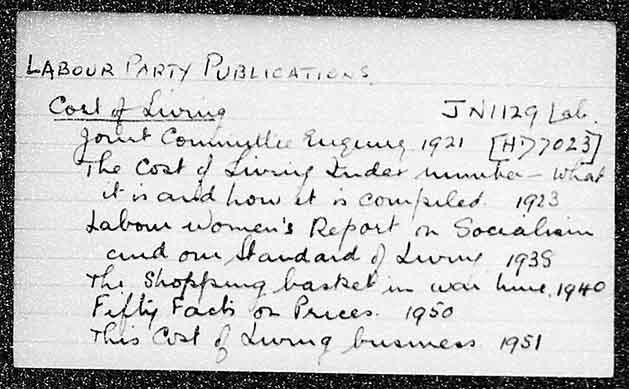 LABOUR PARTY PUBLICATIONS.
Cost of Living JN1129 Lab.
Joint Committee Enquiry 1921 [HD7023]
The Cost of Living Index number - What
it is and how it is compiled. 1923
Labour Women's Report on Socialism
and our Standard of Living 1938
The Shopping basket in war time. 1940
Fifty Facts on Prices. 1950
This Cost of Living business 1951